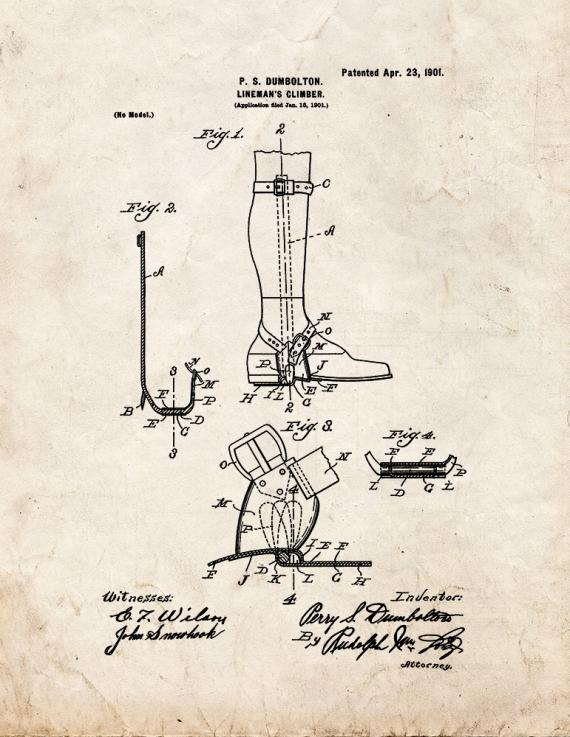 Patented Apr. 23, 1901.
P. S. DUMBOLTON.
LINEMAN'S CLIMBER.
(Application filed Jan. 18, 1901.)
(No Model.)
Fig. 1.
2
C
A
N
O
M
P
J
H I L G E F
2
Fig. 2.
A
N
3 O
M
F P
B
E D
G
3
Fig. 3.
O
N
M
4
P
I E F
F J D K L G H
4
Fig. 4.
F E
P
L D G L
Witnesses:
C. F. Wilson
John Snowhook
Inventor:
Perry S. Dumbolton
By Rudolph Wm.
Attorney.